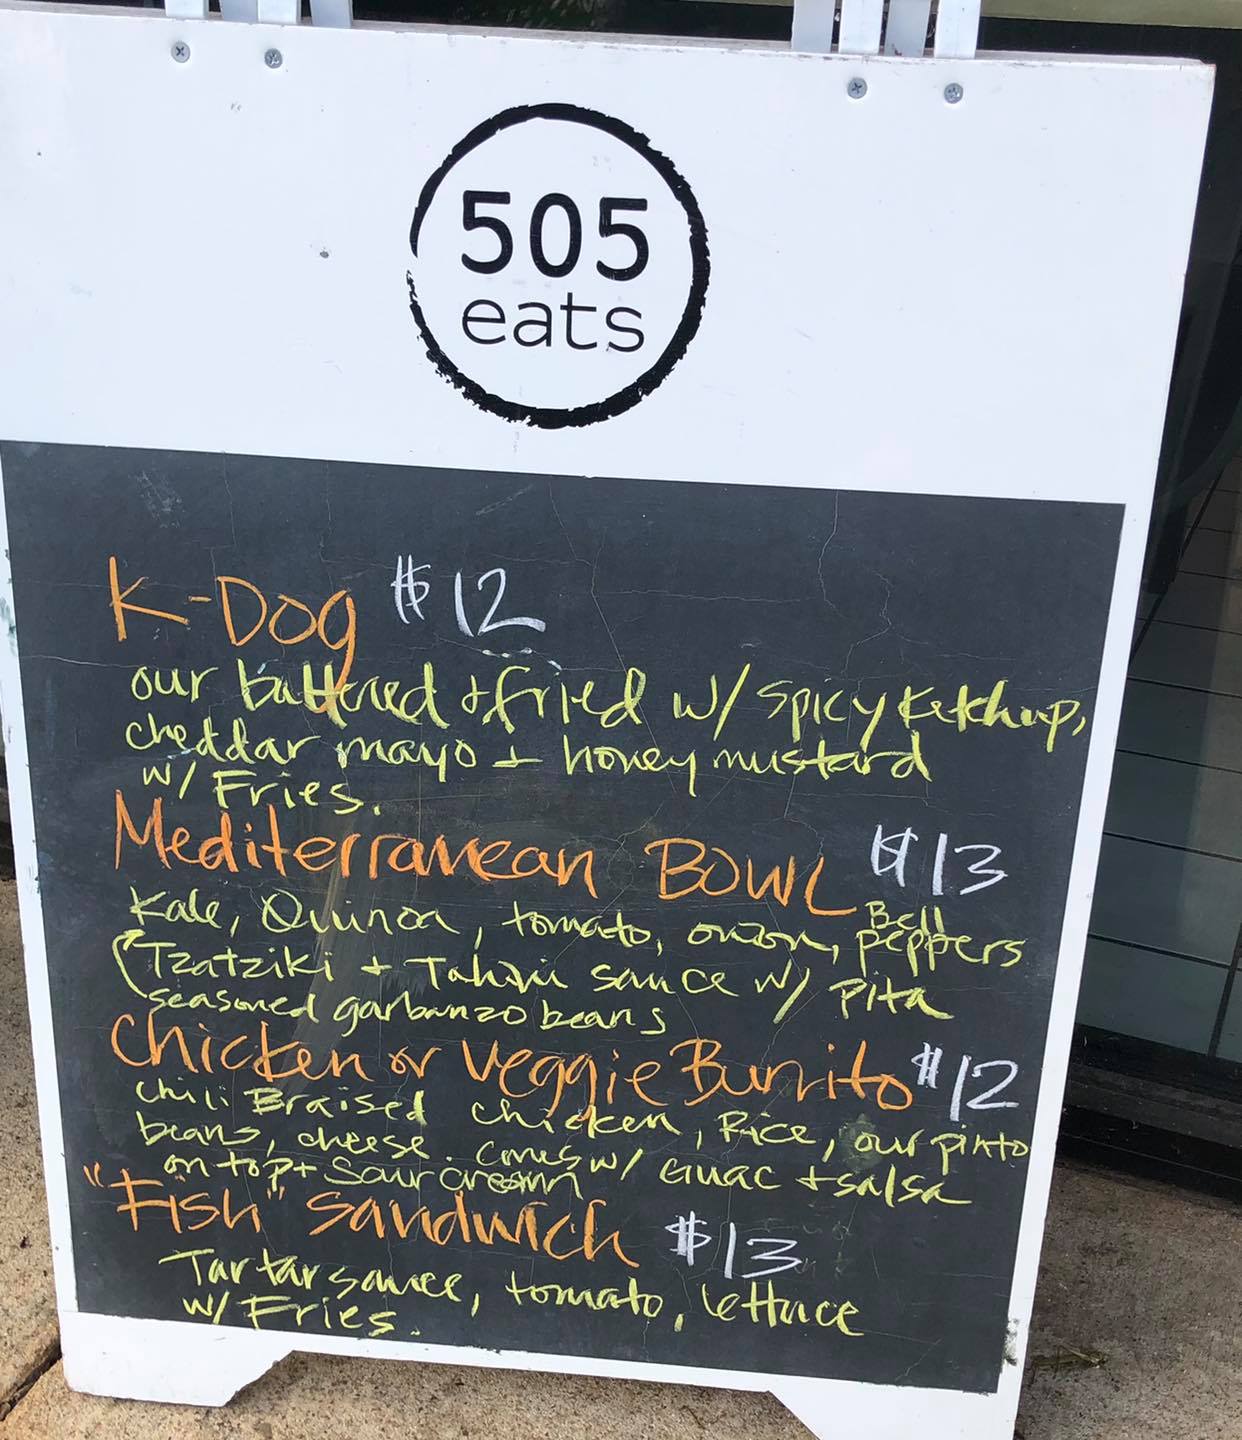 505
eats
K-Dog $12
our battered + fried w/ spicy ketchup,
cheddar mayo + honey mustard
w/ Fries.
Mediterranean BOWL $13
Kale, Quinoa, tomato, onion, Bell peppers
Tzatziki + Tahini sauce w/ pita
seasoned garbanzo beans
Chicken or Veggie Burrito $12
Chili Braised chicken, Rice, our pinto
beans, cheese. comes w/ Guac + salsa
on top + Sour cream
"Fish" Sandwich $13
Tartar sauce, tomato, lettuce
w/ Fries.